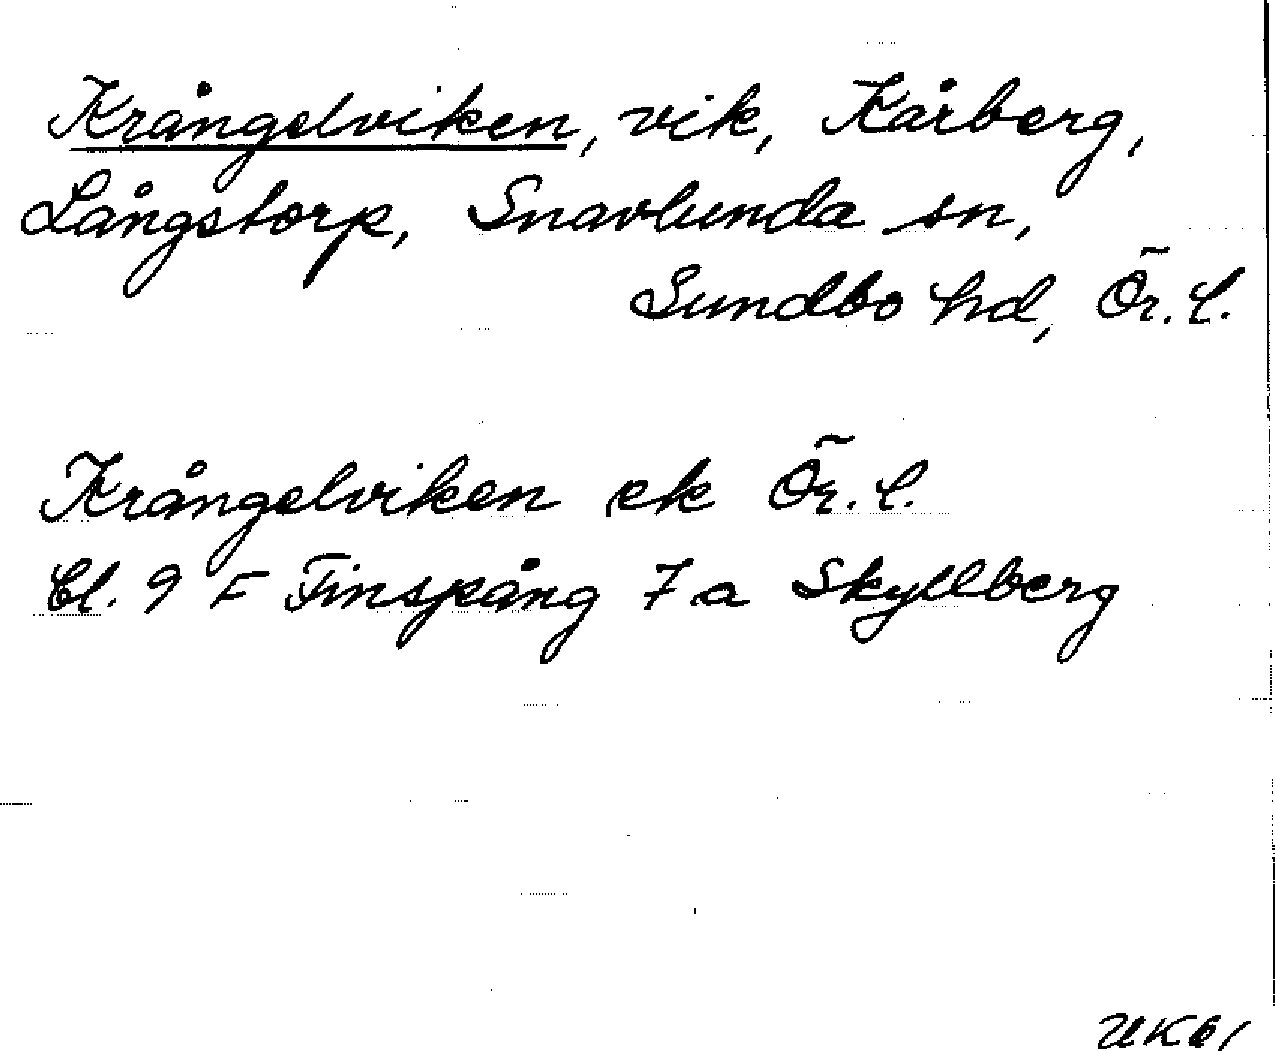 Krångelviken, vik, Kårberg,
Långstorp, Snavlunda sn,
Sundbo hd, Ör. l.
Krångelviken ek Ör. l.
Bl. 9 F Finspång 7 a Skyllberg
UK61